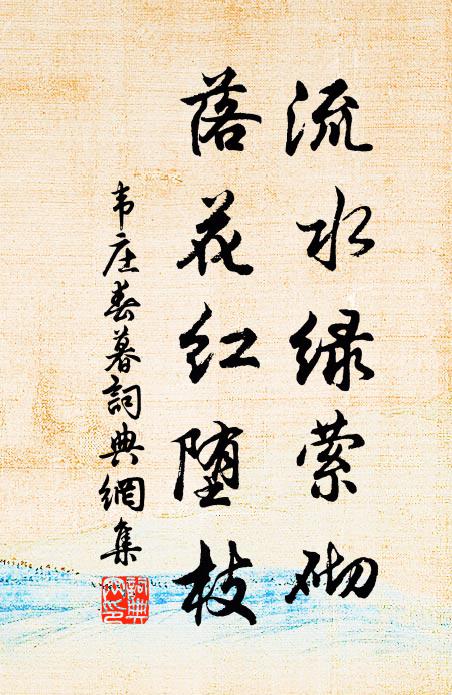 流水绿萦砌
落花红堕枝
韦庄春暮詞典網集